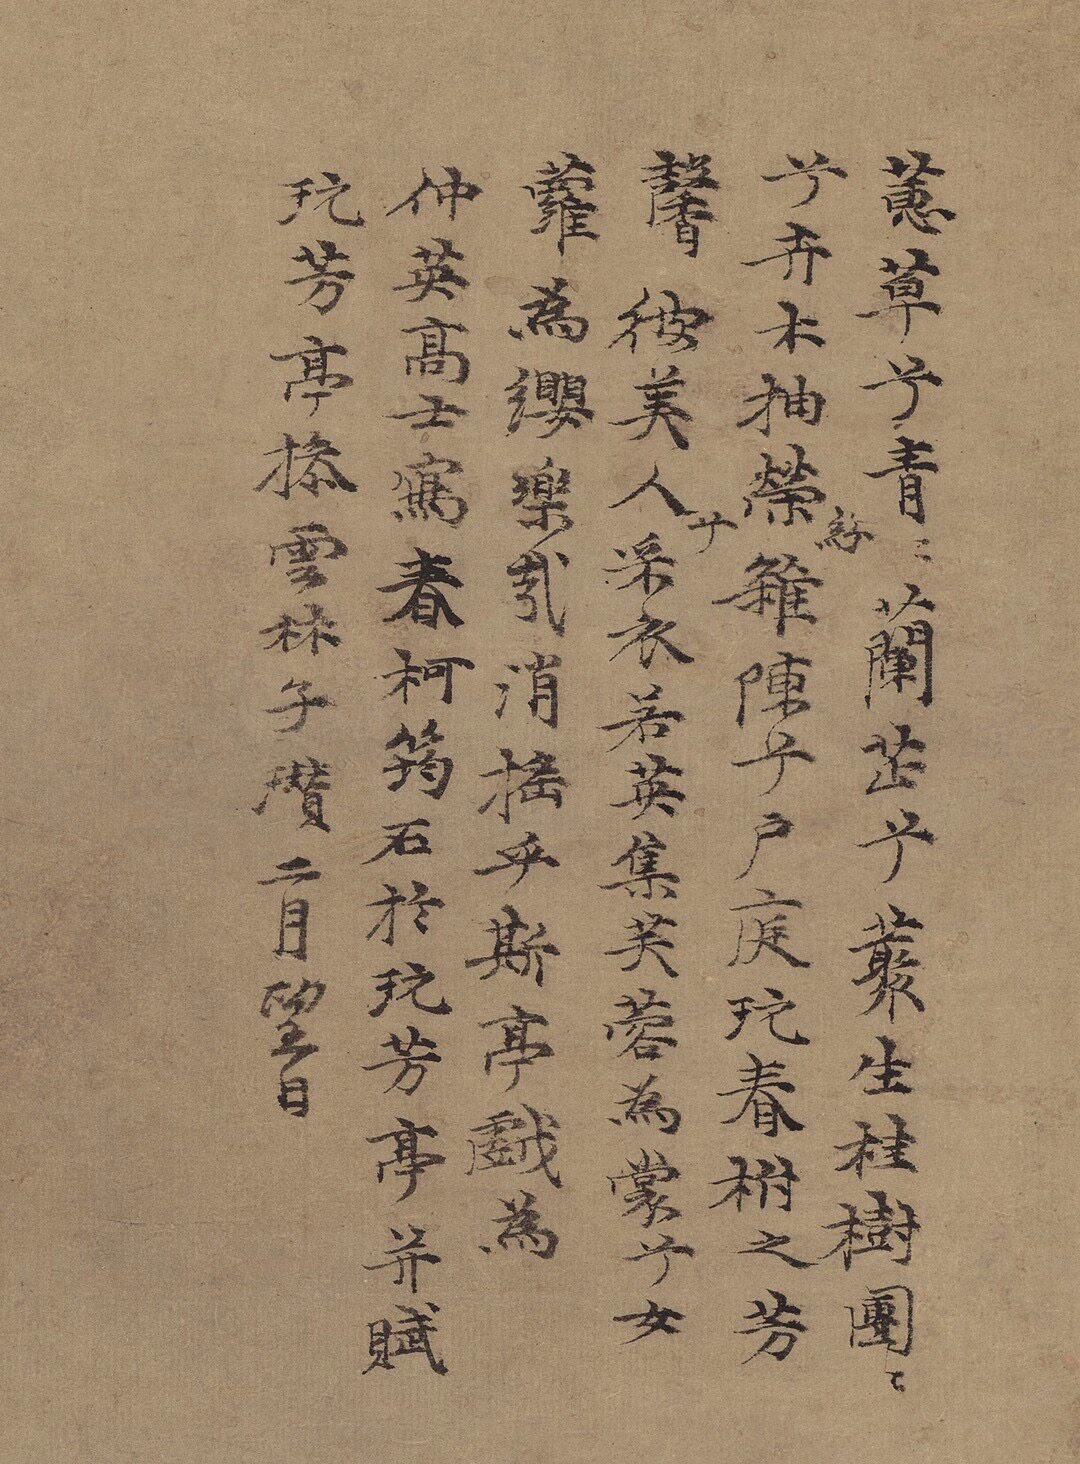 蕙草兮青〻蘭茝兮叢生桂樹團〻
兮卉木抽榮紛雜陳兮戶庭玩春柎之芳
馨彼美人兮采衣若英集芙蓉為裳兮女
蘿為纓樂哉消搖乎斯亭戲為
仲英高士寫春柯筠石於玩芳亭并賦
玩芳亭操雲林子瓚二月望日